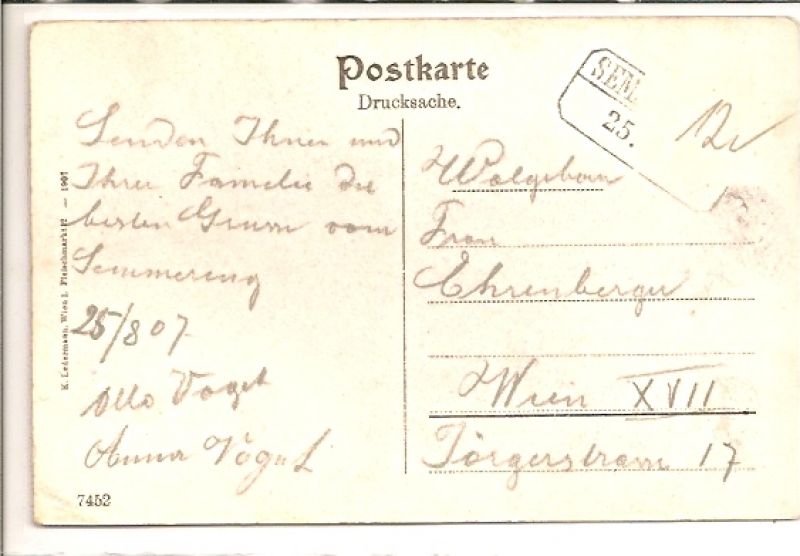 Postkarte
Drucksache.
SEM
25.
Senden Ihnen und
Ihrer Familie die
besten Grüsse vom
Semmering
25/8 07
Otto Vogel
Anna Vogel
K. Ledermann, Wien I. Fleischmarkt 12 — 1907
7452
12
Wolgeborn
Frau
Ehrenberger
Wien XVII
Jörgerstrasse 17